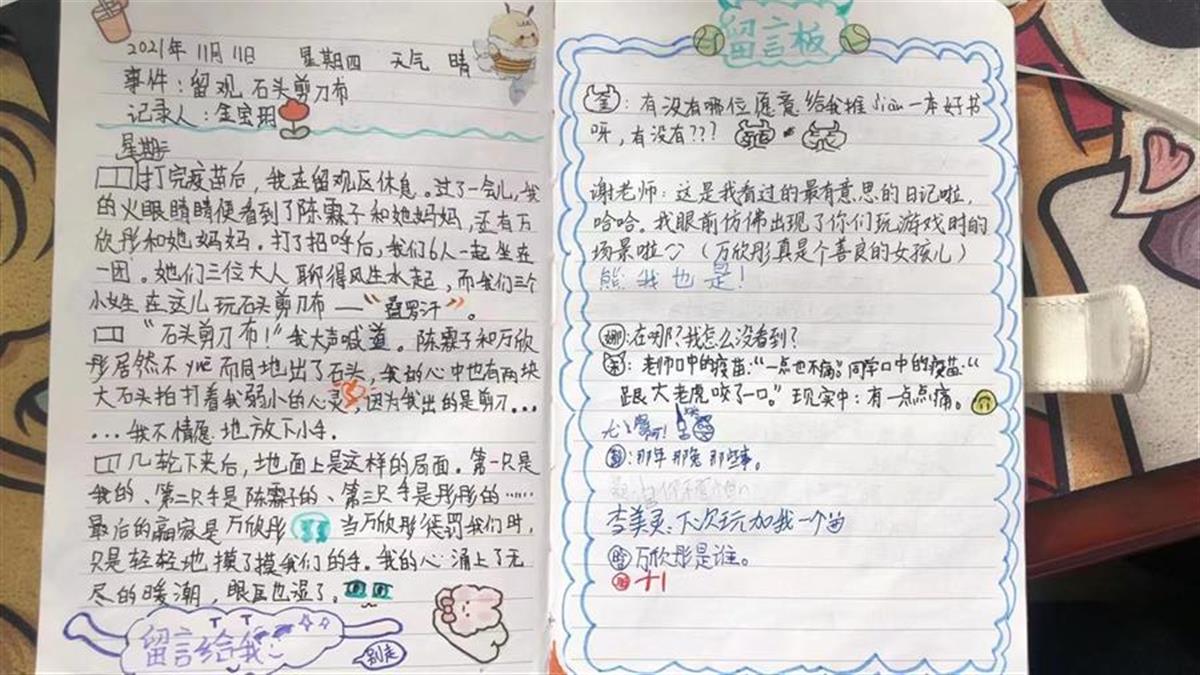 2021年 11月 11日 星期四 天气 晴
事件：留观 石头剪刀布
记录人：金宝玥
星期三
打完疫苗后，我在留观区休息。过了一会儿，我
的火眼睛睛便看到了陈霖子和她妈妈，还有万
欣彤和她妈妈。打了招呼后，我们6人一起坐在
一团。她们三位大人聊得风生水起，而我们三个
小女生在这儿玩石头剪刀布——“叠罗汉”。
“石头剪刀布！”我大声喊道。陈霖子和万欣
彤居然不yuē而同地出了石头，我的心中也有两块
大石头拍打着我弱小的心灵，因为我出的是剪刀……
……我不情愿地放下小手。
几轮下来后，地面上是这样的局面。第一只是
我的、第二只手是陈霖子的、第三只手是彤彤的……
最后的赢家是万欣彤 当万欣彤惩罚我们时，
只是轻轻地摸了摸我们的手。我的心涌上了无
尽的暖潮，眼眶也湿了。
留言给我
别走
留言板
：有没有哪位愿意给我推jiàn一本好书
呀，有没有???
谢老师：这是我看过的最有意思的日记啦，
哈哈。我眼前仿佛出现了你们玩游戏时的
场景啦（万欣彤真是个善良的女孩儿）
熊 我也是！
娜：在哪？我怎么没看到？
：老师口中的疫苗：“一点也不痛。”同学口中的疫苗：“
跟大老虎咬了一口。”现实中：有一点点痛。
：那年那兔那些事。
李美灵：下次玩加我一个
万欣彤是谁。
+1